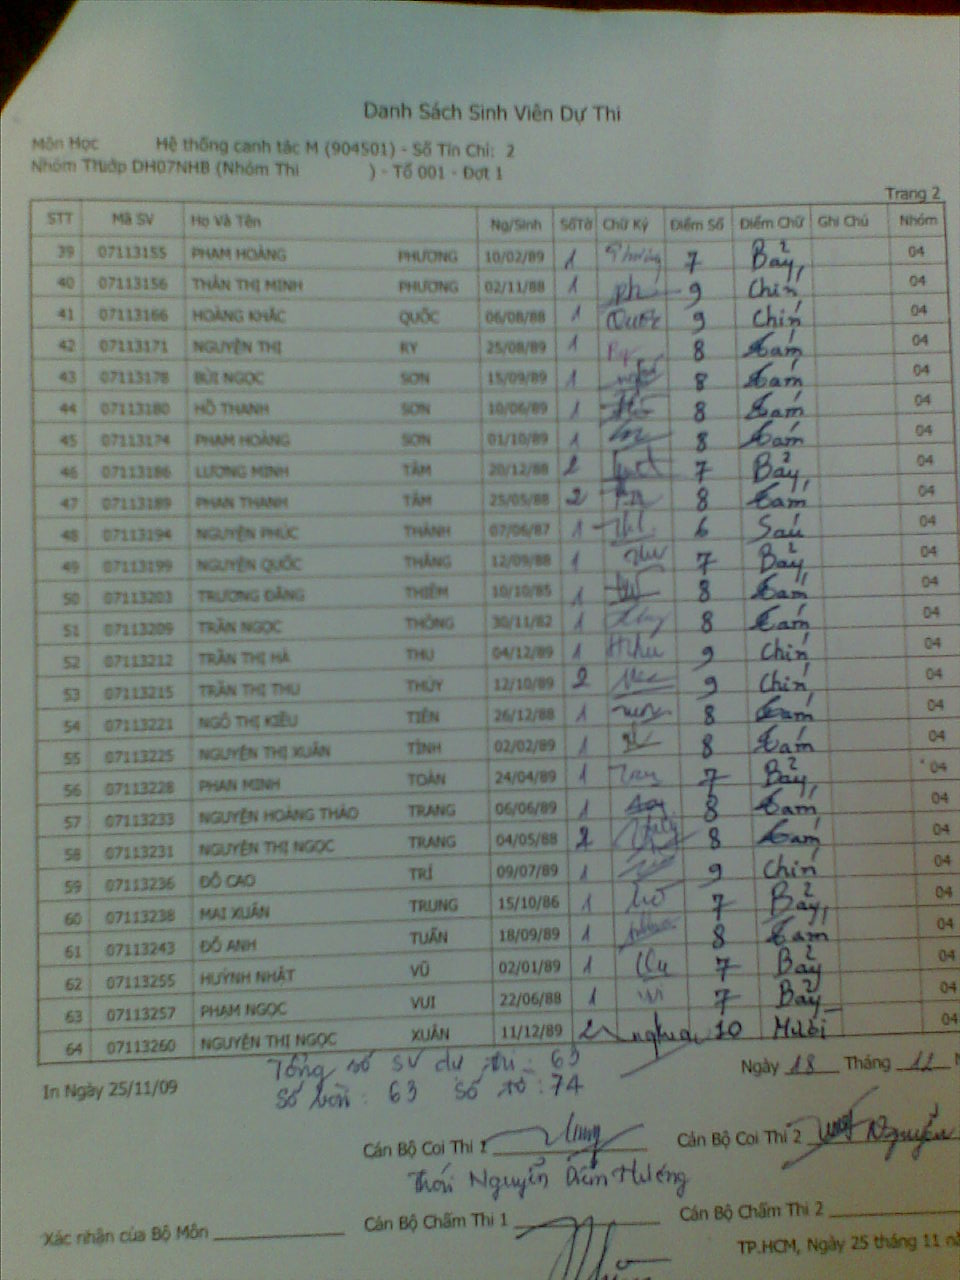 Danh Sách Sinh Viên Dự Thi
Môn Học Hệ thống canh tác M (904501) - Số Tín Chỉ: 2
Nhóm DH07NHB (Nhóm Thi ) - Tổ 001 - Đợt 1
Trang 2
STT Mã SV Họ Và Tên Ng/Sinh SốTờ Chữ Ký Điểm Số Điểm Chữ Ghi Chú Nhóm
39 07113155 PHẠM HOÀNG PHƯƠNG 10/02/89 1 Phương 7 Bảy 04
40 07113156 THÂN THỊ MINH PHƯƠNG 02/11/88 1 Ph 9 Chín 04
41 07113166 HOÀNG KHẮC QUỐC 06/08/88 1 Quốc 9 Chín 04
42 07113171 NGUYỄN THỊ RY 25/08/89 1 Ry 8 tám 04
43 07113178 BÙI NGỌC SƠN 15/09/89 1 8 tám 04
44 07113180 HỒ THANH SƠN 10/06/89 1 8 tám 04
45 07113174 PHẠM HOÀNG SƠN 01/10/89 1 8 tám 04
46 07113186 LƯƠNG MINH TÂM 20/12/88 2 7 Bảy 04
47 07113189 PHAN THANH TÂM 25/05/88 2 8 tám 04
48 07113194 NGUYỄN PHÚC THÀNH 07/06/87 1 6 Sáu 04
49 07113199 NGUYỄN QUỐC THẮNG 12/09/88 1 7 Bảy 04
50 07113203 TRƯƠNG ĐĂNG THIÊM 10/10/85 1 8 tám 04
51 07113209 TRẦN NGỌC THÔNG 30/11/82 1 8 tám 04
52 07113212 TRẦN THỊ HÀ THU 04/12/89 1 Thu 9 Chín 04
53 07113215 TRẦN THỊ THU THỦY 12/10/89 2 9 Chín 04
54 07113221 NGÔ THỊ KIỀU TIÊN 26/12/88 1 8 tám 04
55 07113225 NGUYỄN THỊ XUÂN TÌNH 02/02/89 1 8 tám 04
56 07113228 PHAN MINH TOÀN 24/04/89 1 7 Bảy 04
57 07113233 NGUYỄN HOÀNG THẢO TRANG 06/06/89 1 8 tám 04
58 07113231 NGUYỄN THỊ NGỌC TRANG 04/05/88 2 8 tám 04
59 07113236 ĐỖ CAO TRÍ 09/07/89 1 9 Chín 04
60 07113238 MAI XUÂN TRUNG 15/10/86 1 7 Bảy 04
61 07113243 ĐỖ ANH TUẤN 18/09/89 1 8 tám 04
62 07113255 HUỲNH NHẬT VŨ 02/01/89 1 7 Bảy 04
63 07113257 PHẠM NGỌC VUI 22/06/88 1 Vui 7 Bảy 04
64 07113260 NGUYỄN THỊ NGỌC XUÂN 11/12/89 2 10 Mười 04
Tổng số SV dự thi: 63
Số bài: 63 Số tờ: 74
In Ngày 25/11/09
Ngày 18 Tháng 12 N
Cán Bộ Coi Thi 1 Cán Bộ Coi Thi 2 Nguyễn
Thái Nguyễn Diễm Hương
Xác nhận của Bộ Môn Cán Bộ Chấm Thi 1 Cán Bộ Chấm Thi 2
TP.HCM, Ngày 25 tháng 11 nă